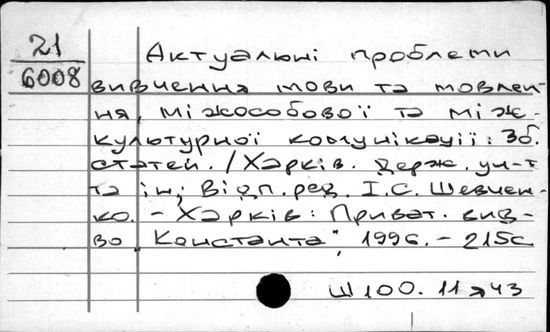 21
6008
Актуальні проблеми
вивчення мови та мовлен-
ня, міжособової та між-
культурної комунікації: Зб.
статей. / Харків. держ. ун-т
та ін; Відп. ред. І.С. Шевчен-
ко. - Харків: Приват. вид-
во „Константа", 1996. - 215с
Ш100.11я43